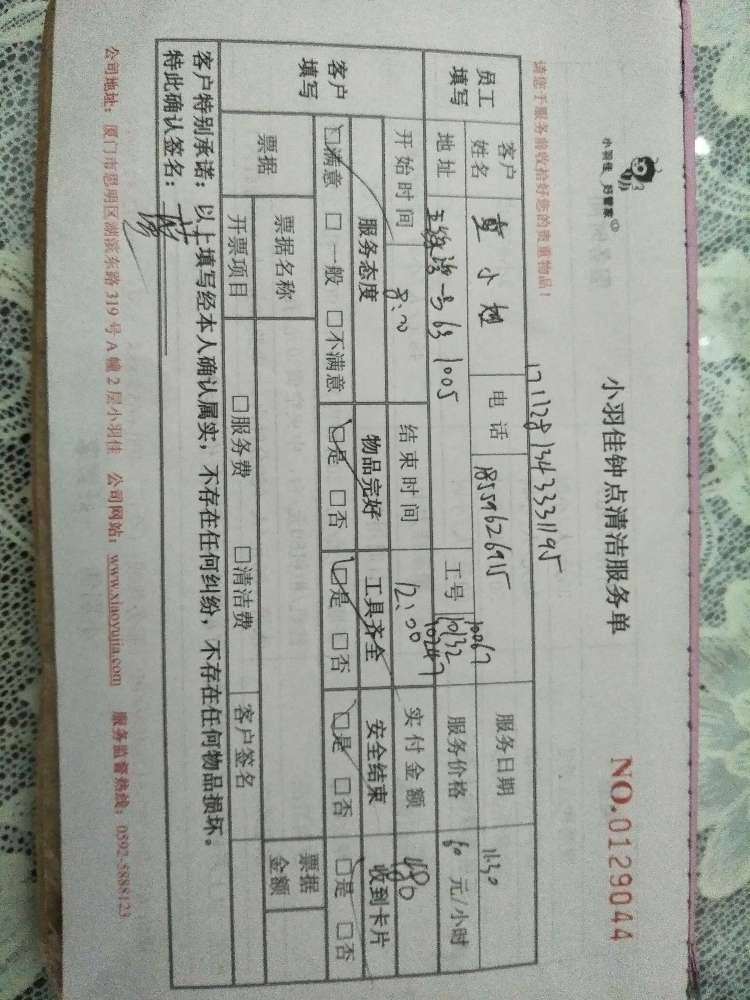 小羽佳 好管家
小羽佳钟点清洁服务单
NO.0129044
请您于服务前收拾好您的贵重物品!
17112813433331195
员工填写
客户姓名 小 电话 18559626915 服务日期 11.30
地址 1005 工号 10132 10247 服务价格 60 元/小时
客户填写
开始时间 8:00 结束时间 12:00 实付金额 480
服务态度 物品完好 工具齐全 安全结束 收到卡片
□满意 □一般 □不满意 □是 □否 □是 □否 □是 □否 □是 □否
票据 票据名称 票据金额
开票项目 □服务费 □清洁费 客户签名
客户特别承诺:以上填写经本人确认属实,不存在任何纠纷,不存在任何物品损坏。
特此确认签名:
公司地址:厦门市思明区湖滨东路 319 号 A 幢 2 层小羽佳 公司网站:www.xiaoyujia.com 服务监督热线:0592-5888123